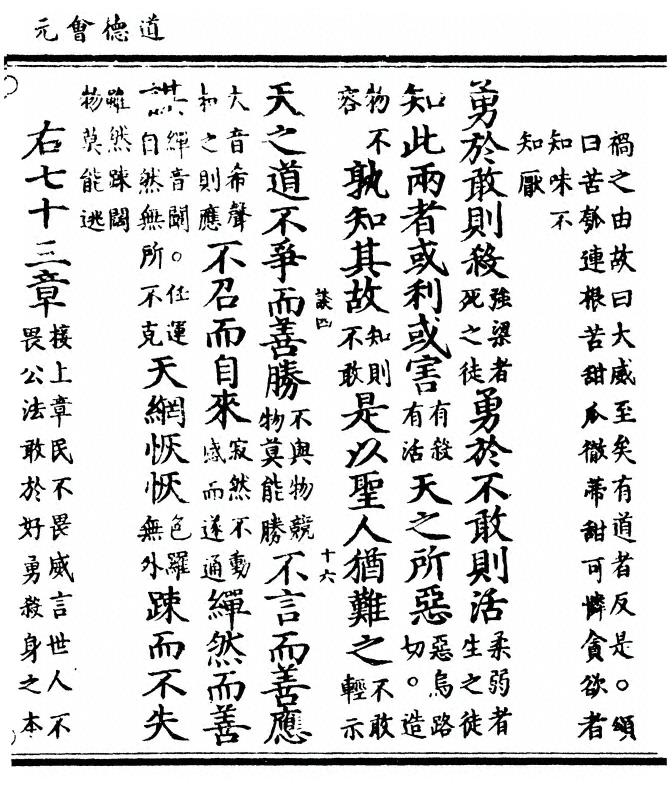 道德會元
禍之由故曰大威至矣有道者反是○頌
曰苦瓠連根苦甜瓜徹蒂甜可憐貪欲者
知味不
知厭
勇於敢則殺強梁者死之徒勇於不敢則活柔弱者生之徒
知此兩者或利或害有殺有活天之所惡惡烏路切○造
物不容孰知其故知則不敢是以聖人猶難之不敢輕示
談四 十六
天之道不爭而善勝不與物競物莫能勝不言而善應
大音希聲和之則應不召而自來寂然不動感而遂通繟然而善
謀繟音闡○任運自然無所不克天網恢恢色羅無外踈而不失
雖然踈闊物莫能逃
右七十三章接上章民不畏威言世人不畏公法敢於好勇殺身之本